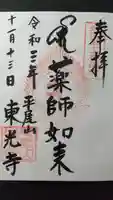 奉拝
薬師如来
令和三年 平尾山
十一月十三日 東光寺